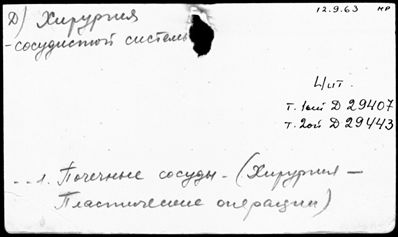 12.9.63 МР
Д) Хирургия
-сосудистой системы
Цит.
т. 1ый Д 29407
т. 2ой Д 29443
...1. Почечные сосуды - (Хирургия —
Пластические операции)